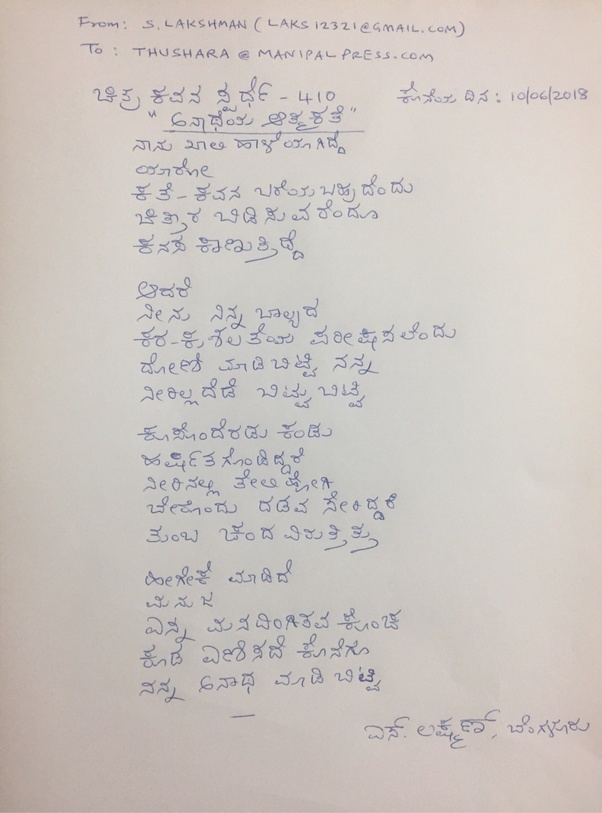 From: S. LAKSHMAN (LAKS12321@GMAIL.COM)
To: THUSHARA@MANIPALPRESS.COM
ಚಿತ್ರ ಕವನ ಸ್ಪರ್ಧೆ - 410 ಕೊನೆಯ ದಿನ: 10/06/2018
"ಅನಾಥೆಯ ಆತ್ಮಕತೆ"
ನಾನು ಖಾಲಿ ಹಾಳೆಯಾಗಿದ್ದೆ
ಯಾರೋ
ಕತೆ-ಕವನ ಬರೆಯಬಹುದೆಂದು
ಚಿತ್ತಾರ ಬಿಡಿಸುವರೆಂದೂ
ಕನಸ ಕಾಣುತ್ತಿದ್ದೆ
ಆದರೆ
ನೀನು ನಿನ್ನ ಬಾಲ್ಯದ
ಕರ-ಕುಶಲತೆಯ ಪರೀಕ್ಷಿಸಲೆಂದು
ದೋಣಿ ಮಾಡಿಬಿಟ್ಟೆ ನನ್ನ
ನೀರಿಲ್ಲದೆಡೆ ಬಿಟ್ಟು ಬಿಟ್ಟೆ
ಕೂಸೊಂದೆರಡು ಕಂಡು
ಹರ್ಷಿತಗೊಂಡಿದ್ದರೆ
ನೀರಿನಲ್ಲಿ ತೇಲಿ ಹೋಗಿ
ಬೇರೊಂದು ದಡವ ಸೇರಿದ್ದರೆ
ತುಂಬ ಚಂದವಿರುತ್ತಿತ್ತು
ಹೀಗೇಕೆ ಮಾಡಿದೆ
ಮನುಜ
ಎನ್ನ ಮನದಿಂಗಿತವ ಕೊಂಚ
ಕೂಡ ಎಣಿಸದೆ ಕೊನೆಗೂ
ನನ್ನ ಅನಾಥ ಮಾಡಿಬಿಟ್ಟೆ
ಎಸ್. ಲಕ್ಷ್ಮಣ್, ಬೆಂಗಳೂರು